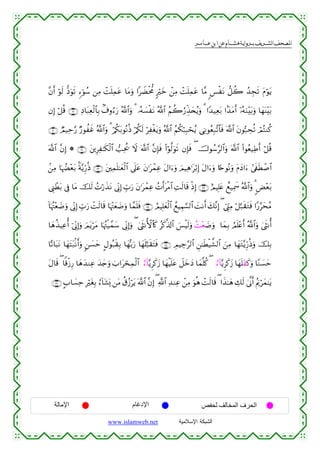 المصحف الشريف برواية هشام عن ابن عامر
يَوْمَ تَجِدُ كُلُّ نَفْسٍ مَّا عَمِلَتْ مِنْ خَيْرٍ مُّحْضَرًا وَمَا عَمِلَتْ مِن سُوٓءٍ تَوَدُّ لَوْ أَنَّ
بَيْنَهَا وَبَيْنَهُۥٓ أَمَدًۢا بَعِيدًا ۗ وَيُحَذِّرُكُمُ ٱللَّهُ نَفْسَهُۥ ۗ وَٱللَّهُ رَءُوفٌۢ بِٱلْعِبَادِ ﴿٣٠﴾ قُلْ إِن
كُنتُمْ تُحِبُّونَ ٱللَّهَ فَٱتَّبِعُونِى يُحْبِبْكُمُ ٱللَّهُ وَيَغْفِرْ لَكُمْ ذُنُوبَكُمْ ۗ وَٱللَّهُ غَفُورٌ رَّحِيمٌ ﴿٣١﴾
قُلْ أَطِيعُوا۟ ٱللَّهَ وَٱلرَّسُولَ ۖ فَإِن تَوَلَّوْا۟ فَإِنَّ ٱللَّهَ لَا يُحِبُّ ٱلْكَٰفِرِينَ ﴿٣٢﴾ ۞ إِنَّ ٱللَّهَ
ٱصْطَفَىٰٓ ءَادَمَ وَنُوحًا وَءَالَ إِبْرَٰهِيمَ وَءَالَ عِمْرَٰنَ عَلَى ٱلْعَٰلَمِينَ ﴿٣٣﴾ ذُرِّيَّةًۢ بَعْضُهَا مِنۢ
بَعْضٍ ۗ وَٱللَّهُ سَمِيعٌ عَلِيمٌ ﴿٣٤﴾ إِذْ قَالَتِ ٱمْرَأَتُ عِمْرَٰنَ رَبِّ إِنِّى نَذَرْتُ لَكَ مَا فِى بَطْنِى
مُحَرَّرًا فَتَقَبَّلْ مِنِّىٓ ۖ إِنَّكَ أَنتَ ٱلسَّمِيعُ ٱلْعَلِيمُ ﴿٣٥﴾ فَلَمَّا وَضَعَتْهَا قَالَتْ رَبِّ إِنِّى وَضَعْتُهَآ
أُنثَىٰ وَٱللَّهُ أَعْلَمُ بِمَا وَضَعْتُ وَلَيْسَ ٱلذَّكَرُ كَٱلْأُنثَىٰ ۖ وَإِنِّى سَمَّيْتُهَا مَرْيَمَ وَإِنِّىٓ أُعِيذُهَا
بِكَ وَذُرِّيَّتَهَا مِنَ ٱلشَّيْطَٰنِ ٱلرَّجِيمِ ﴿٣٦﴾ فَتَقَبَّلَهَا رَبُّهَا بِقَبُولٍ حَسَنٍ وَأَنۢبَتَهَا نَبَاتًا
حَسَنًا وَكَفَلَهَا زَكَرِيَّآءُ ۖ كُلَّمَا دَخَلَ عَلَيْهَا زَكَرِيَّآءُ ٱلْمِحْرَابَ وَجَدَ عِندَهَا رِزْقًا ۖ قَالَ
يَٰمَرْيَمُ أَنَّىٰ لَكِ هَٰذَا ۖ قَالَتْ هُوَ مِنْ عِندِ ٱللَّهِ ۖ إِنَّ ٱللَّهَ يَرْزُقُ مَن يَشَآءُ بِغَيْرِ حِسَابٍ ﴿٣٧﴾
الحرف المخالف لحفص الإدغام الإمالة
الشبكة الإسلامية www.islamweb.net